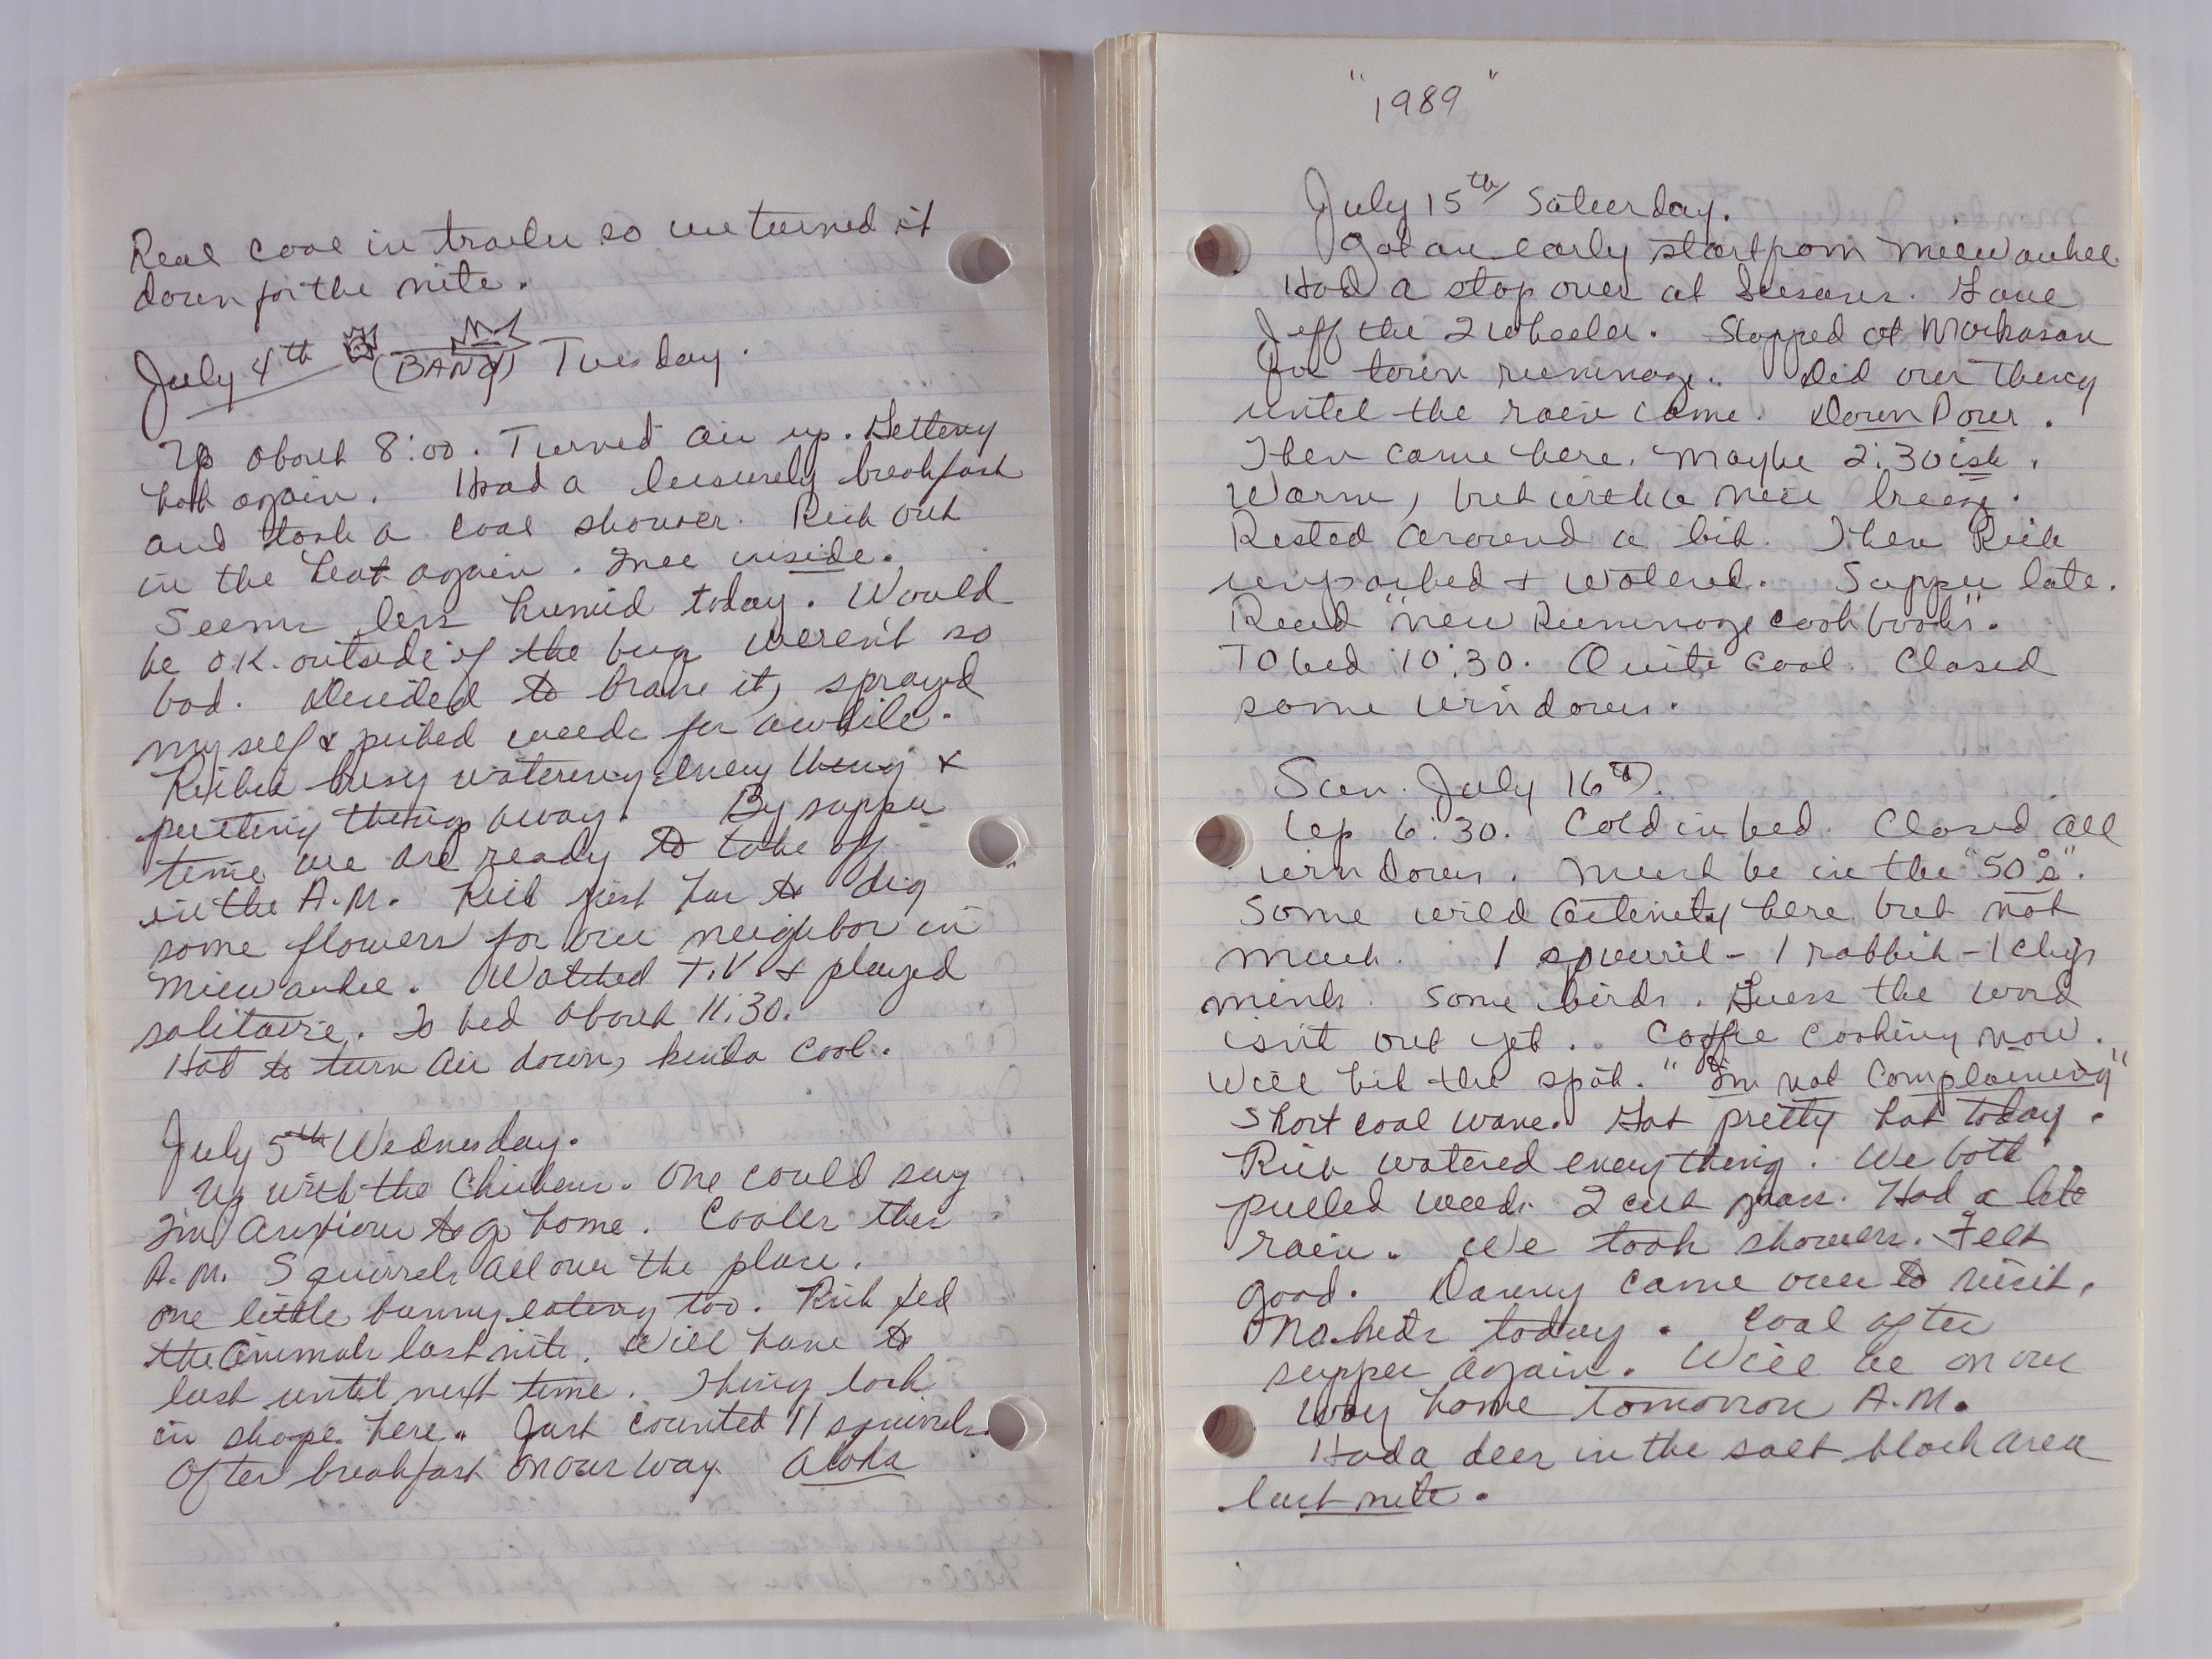 Real cool in trailer so we turned it
down for the nite.
July 4th (BANG) Tuesday.
Up about 8:00. Turned air up. Getting
hot again. Had a leisurely breakfast
and took a cool shower. Rich out
in the heat again. Me inside.
Seems less humid today. Would
be O.K. outside if the bugs weren't so
bad. Decided to brave it, sprayed
myself & picked weeds for awhile.
Rich busy watering everything &
putting things away. By supper
time we are ready to take off
in the A.M. Rich just has to dig
some flowers for our neighbor in
Milwaukee. Watched T.V. & played
solitaire. To bed about 11:30.
Had to turn air down, kinda cool.
July 5th Wednesday.
Up with the chickens. One could say
I'm anxious to go home. Cooler this
A.M. Squirrels all over the place.
One little bunny eating too. Rich fed
the animals last nite. Will have to
last until next time. Things look
in shape here. Just counted 11 squirrels.
After breakfast on our way. Aloha
"1989"
July 15th Saturday.
Got an early start from Milwaukee.
Had a stop over at Susans. Gave
Jeff the 2 wheeler. Stopped at Markasan
for town rummage. Did our thing
until the rain came. Down Pour.
Then came here. Maybe 2:30ish.
Warm, but with a nice breeze.
Rested around a bit. Then Rich
unpacked & watered. Supper late.
Read "new Rummage cook books".
To bed 10:30. Quite cool. Closed
some windows.
Sun. July 16th.
Up 6:30. Cold in bed. Closed all
windows. Must be in the "50°s".
Some wild activity here but not
much. 1 squirril - 1 rabbit - 1 chip
munk. Some birds. Guess the word
isn't out yet. Coffee cooking now.
Will hit the spot. "I'm not complaining"
Short cool wave. Got pretty hot today.
Rich watered everything. We both
pulled weeds. I cut grass. Had a lite
rain. We took showers. Felt
good. Danny came over to visit.
No heds today. Cool after
supper again. Will be on our
way home tomorrow A.M.
Had a deer in the salt block area
last nite.